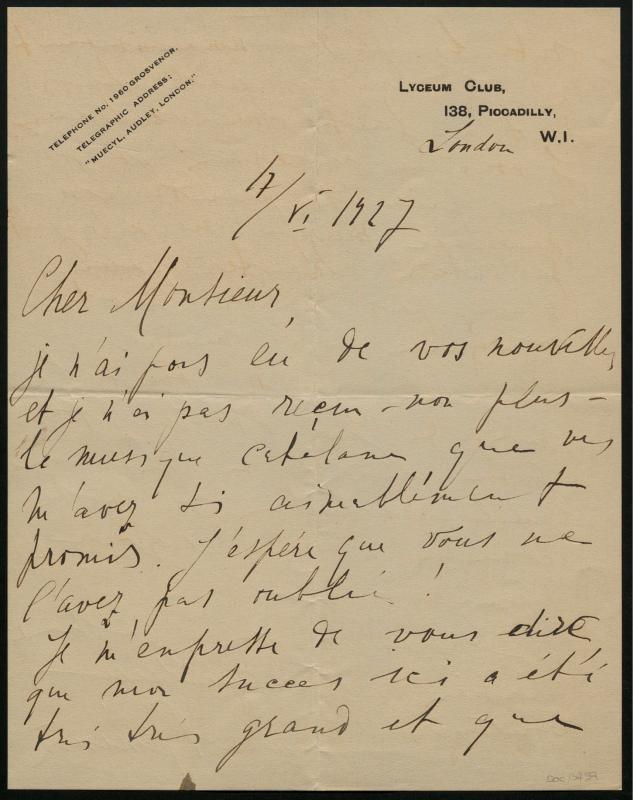 TELEPHONE NO. 1960 GROSVENOR.
TELEGRAPHIC ADDRESS;
"MUECYL, AUDLEY, LONDON."
LYCEUM CLUB,
138, PICCADILLY,
London W.I.
17/VI 1927
Cher Monsieur,
je n'ai pas eu de vos nouvelles
et je n'ai pas reçu – non plus –
la musique catalane que vous
m'avez si aimablement
promis. J'espère que vous ne
l'avez pas oublié!
Je m'empresse de vous dire
que mon succès ici a été
très très grand et que